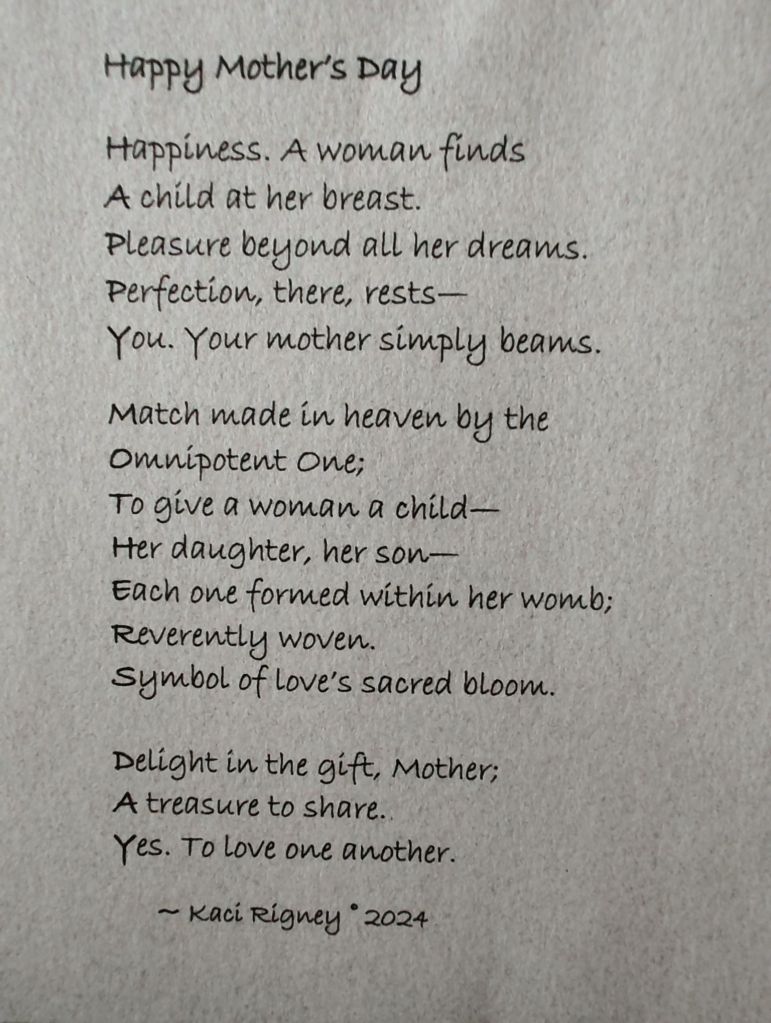 Happy Mother's Day
Happiness. A woman finds
A child at her breast.
Pleasure beyond all her dreams.
Perfection, there, rests—
You. Your mother simply beams.
Match made in heaven by the
Omnipotent One;
To give a woman a child—
Her daughter, her son—
Each one formed within her womb;
Reverently woven.
Symbol of love's sacred bloom.
Delight in the gift, Mother;
A treasure to share.
Yes. To love one another.
~ Kaci Rigney • 2024